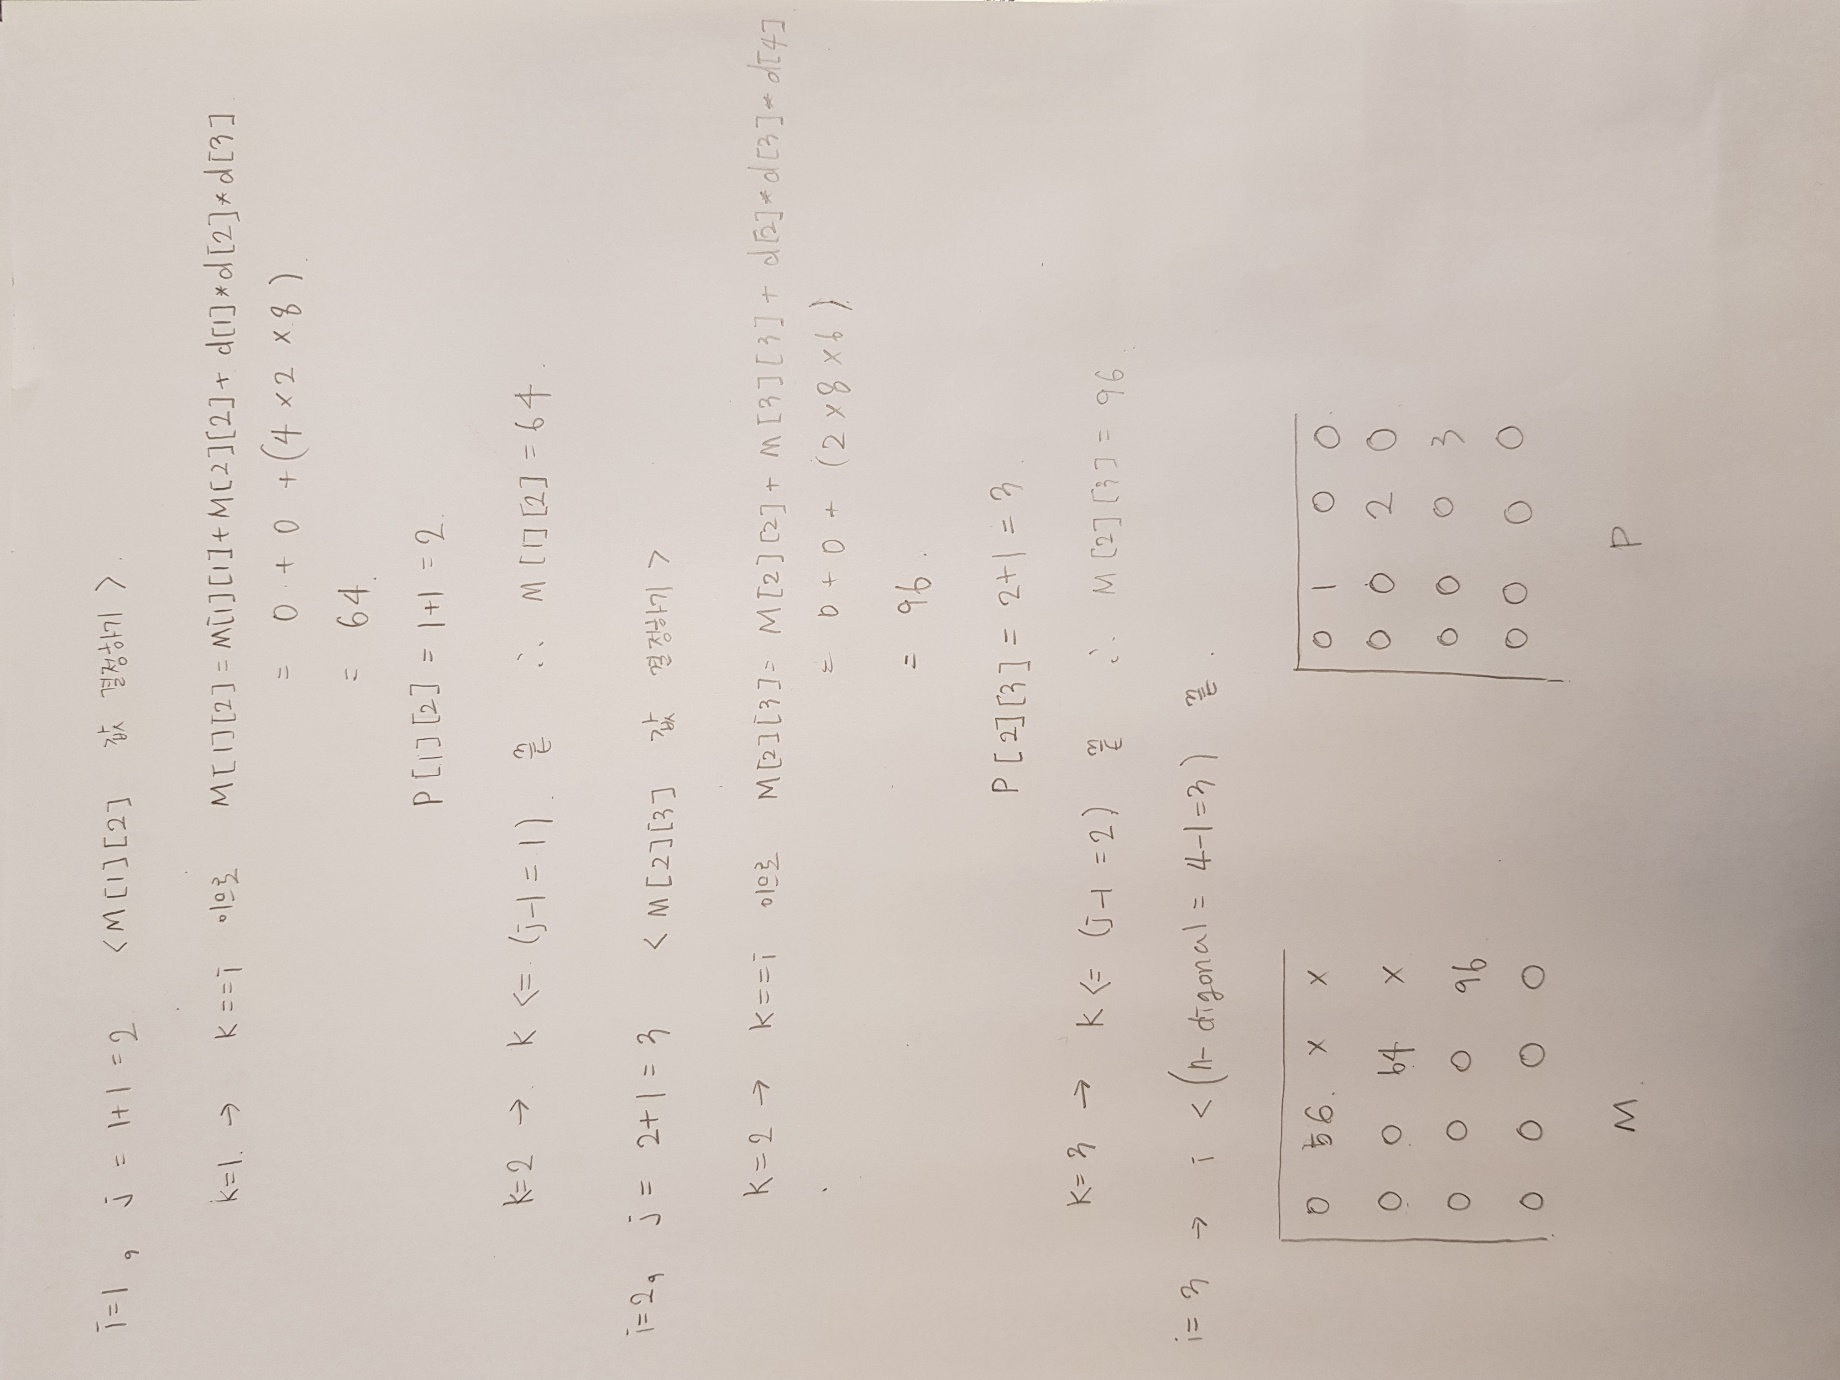 i=1, j = 1+1 = 2 <M[1][2] 값 결정하기>.
k=1. → k==i 이므로 M[1][2] = M[1][1]+M[2][2]+d[1]*d[2]*d[3]
= 0 + 0 + (4 x 2 x 8)
= 64.
P[1][2] = 1+1 = 2.
k=2 → k <= (j-1 = 1). 끝 ∴ M[1][2] = 64.
i=2, j = 2+1 = 3 <M[2][3] 값 결정하기>
k=2 → k==i 이므로 M[2][3] = M[2][2] + M[3][3] + d[2]*d[3]*d[4]
= 0 + 0 + (2 x 8 x 6)
= 96.
P[2][3] = 2+1 = 3.
k=3 → k <= (j-1 = 2) 끝 ∴ M[2][3] = 96.
i=3 → i < (n-digonal = 4-1=3) 끝.
0 56. x x 0 1 0 0
0 0 64 x 0 0 2 0
0 0 0 96 0 0 0 3
0 0 0 0 0 0 0 0
M. P